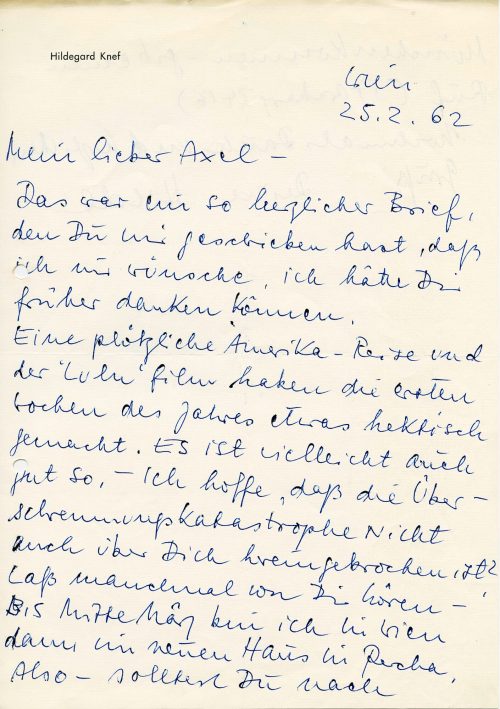 Hildegard Knef
Wien
25.2.62
Mein lieber Axel –
Das war ein so herzlicher Brief,
den Du mir geschicken hast, daß
ich mir wünsche, ich hätte Dir
früher danken können.
Eine plötzliche Amerika-Reise und
der 'Lulu' film haben die ersten
Wochen des Jahres etwas hektisch
gemacht. Es ist vielleicht auch
gut so. – Ich hoffe, daß die Über-
schwemmungskatastrophe nicht
auch über Dich hereingebrochen ist?
Laß manchmal von Dir hören –
Bis Mitte März bin ich in Wien
dann im neuen Haus in Percha.
Also – solltest Du nach